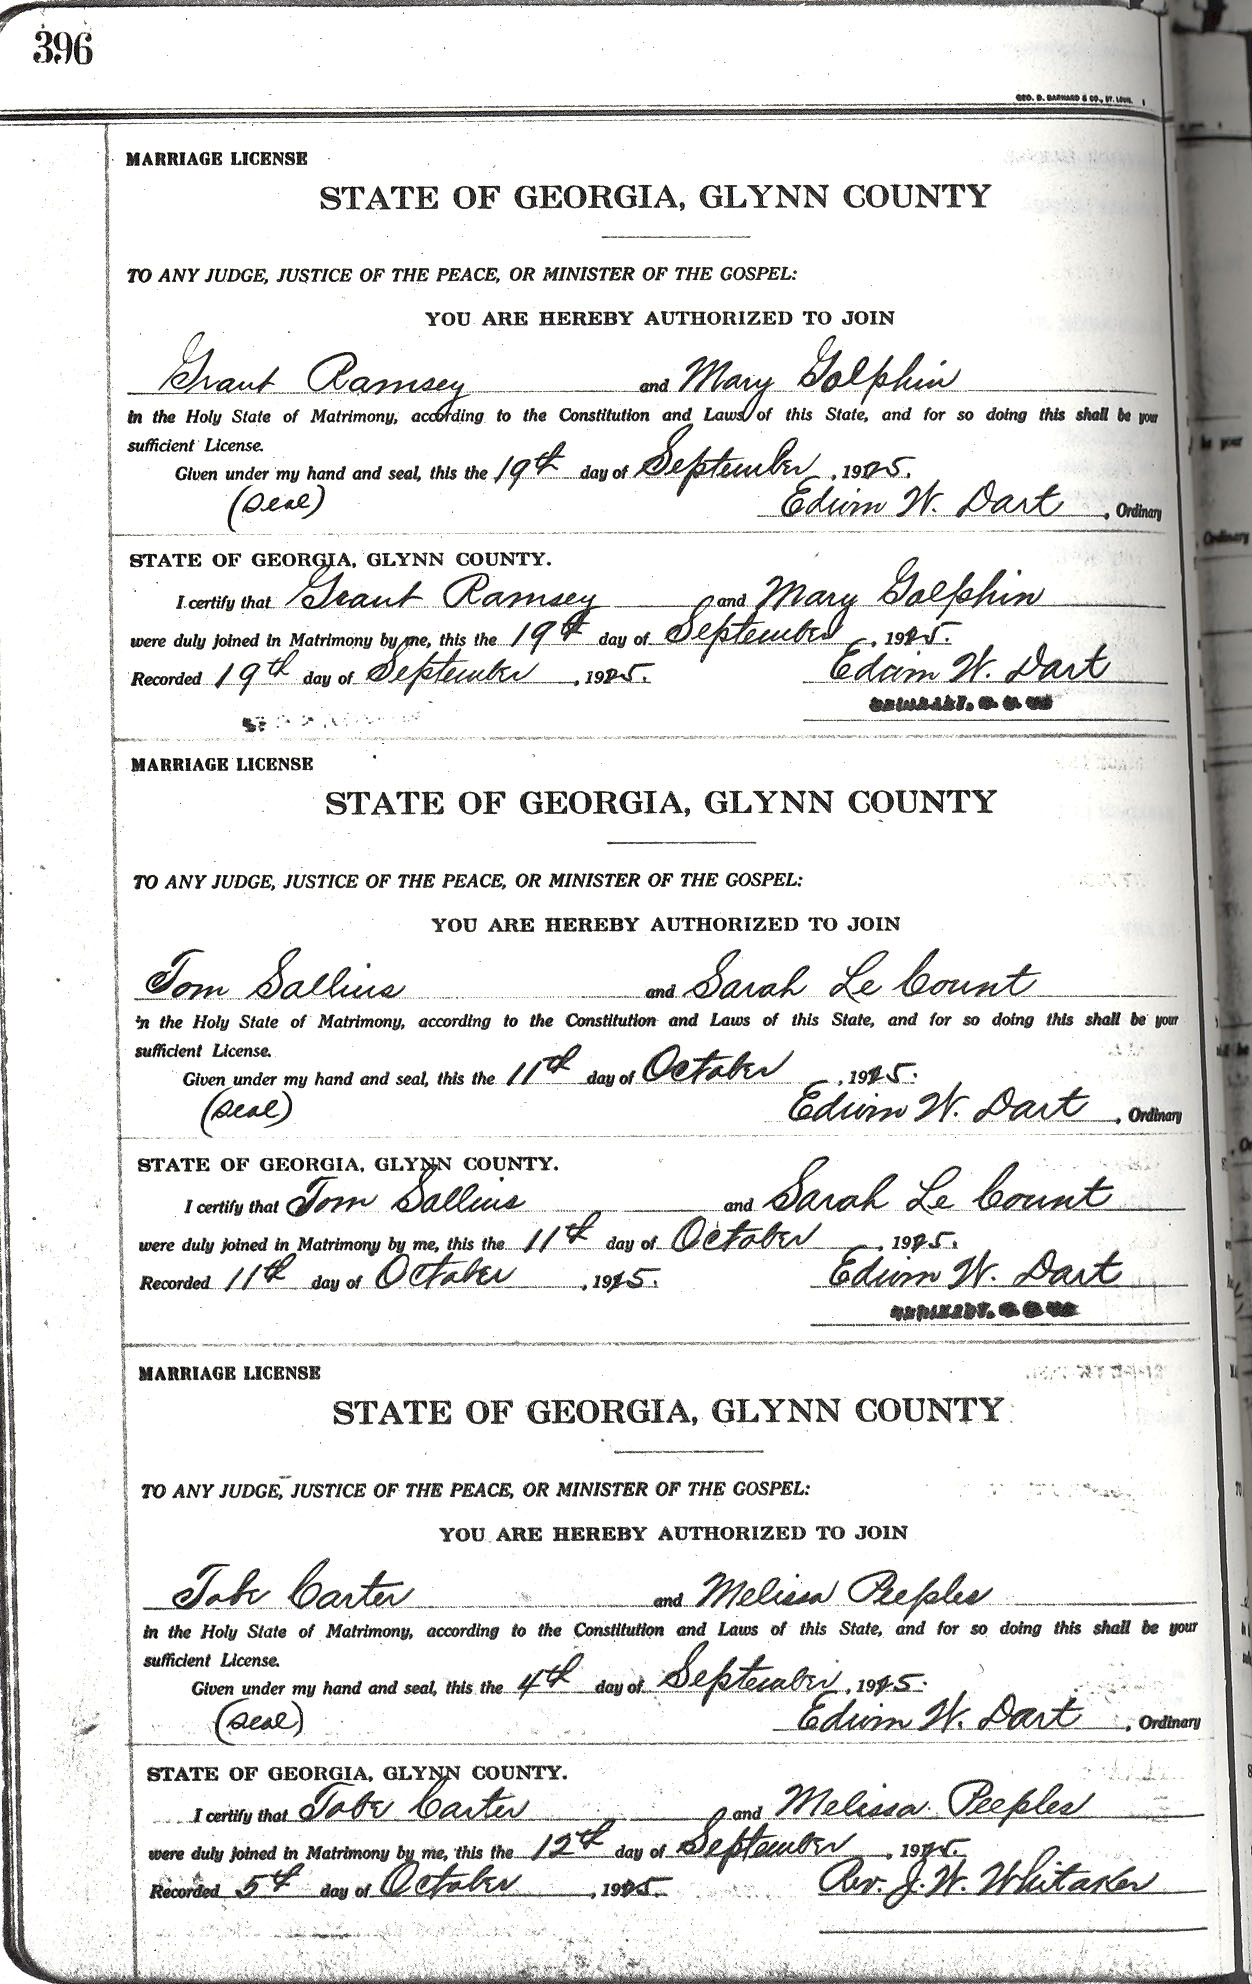 396
GEO. D. BARNARD & CO., ST. LOUIS.
MARRIAGE LICENSE
STATE OF GEORGIA, GLYNN COUNTY
TO ANY JUDGE, JUSTICE OF THE PEACE, OR MINISTER OF THE GOSPEL:
YOU ARE HEREBY AUTHORIZED TO JOIN
Grant Ramsey and Mary Golphin
in the Holy State of Matrimony, according to the Constitution and Laws of this State, and for so doing this shall be your
sufficient License.
Given under my hand and seal, this the 19th day of September, 1925.
(seal) Edwin W. Dart, Ordinary
STATE OF GEORGIA, GLYNN COUNTY.
I certify that Grant Ramsey and Mary Golphin
were duly joined in Matrimony by me, this the 19th day of September, 1925.
Recorded 19th day of September, 1925. Edwin W. Dart
MARRIAGE LICENSE
STATE OF GEORGIA, GLYNN COUNTY
TO ANY JUDGE, JUSTICE OF THE PEACE, OR MINISTER OF THE GOSPEL:
YOU ARE HEREBY AUTHORIZED TO JOIN
Tom Sallius and Sarah Le Count
in the Holy State of Matrimony, according to the Constitution and Laws of this State, and for so doing this shall be your
sufficient License.
Given under my hand and seal, this the 11th day of October, 1925.
(seal) Edwin W. Dart, Ordinary
STATE OF GEORGIA, GLYNN COUNTY.
I certify that Tom Sallius and Sarah Le Count
were duly joined in Matrimony by me, this the 11th day of October, 1925.
Recorded 11th day of October, 1925. Edwin W. Dart
MARRIAGE LICENSE
STATE OF GEORGIA, GLYNN COUNTY
TO ANY JUDGE, JUSTICE OF THE PEACE, OR MINISTER OF THE GOSPEL:
YOU ARE HEREBY AUTHORIZED TO JOIN
Tobe Carter and Melissa Peeples
in the Holy State of Matrimony, according to the Constitution and Laws of this State, and for so doing this shall be your
sufficient License.
Given under my hand and seal, this the 4th day of September, 1925.
(seal) Edwin W. Dart, Ordinary
STATE OF GEORGIA, GLYNN COUNTY.
I certify that Tobe Carter and Melissa Peeples
were duly joined in Matrimony by me, this the 12th day of September, 1925.
Recorded 5th day of October, 1925. Rev. J. W. Whitaker